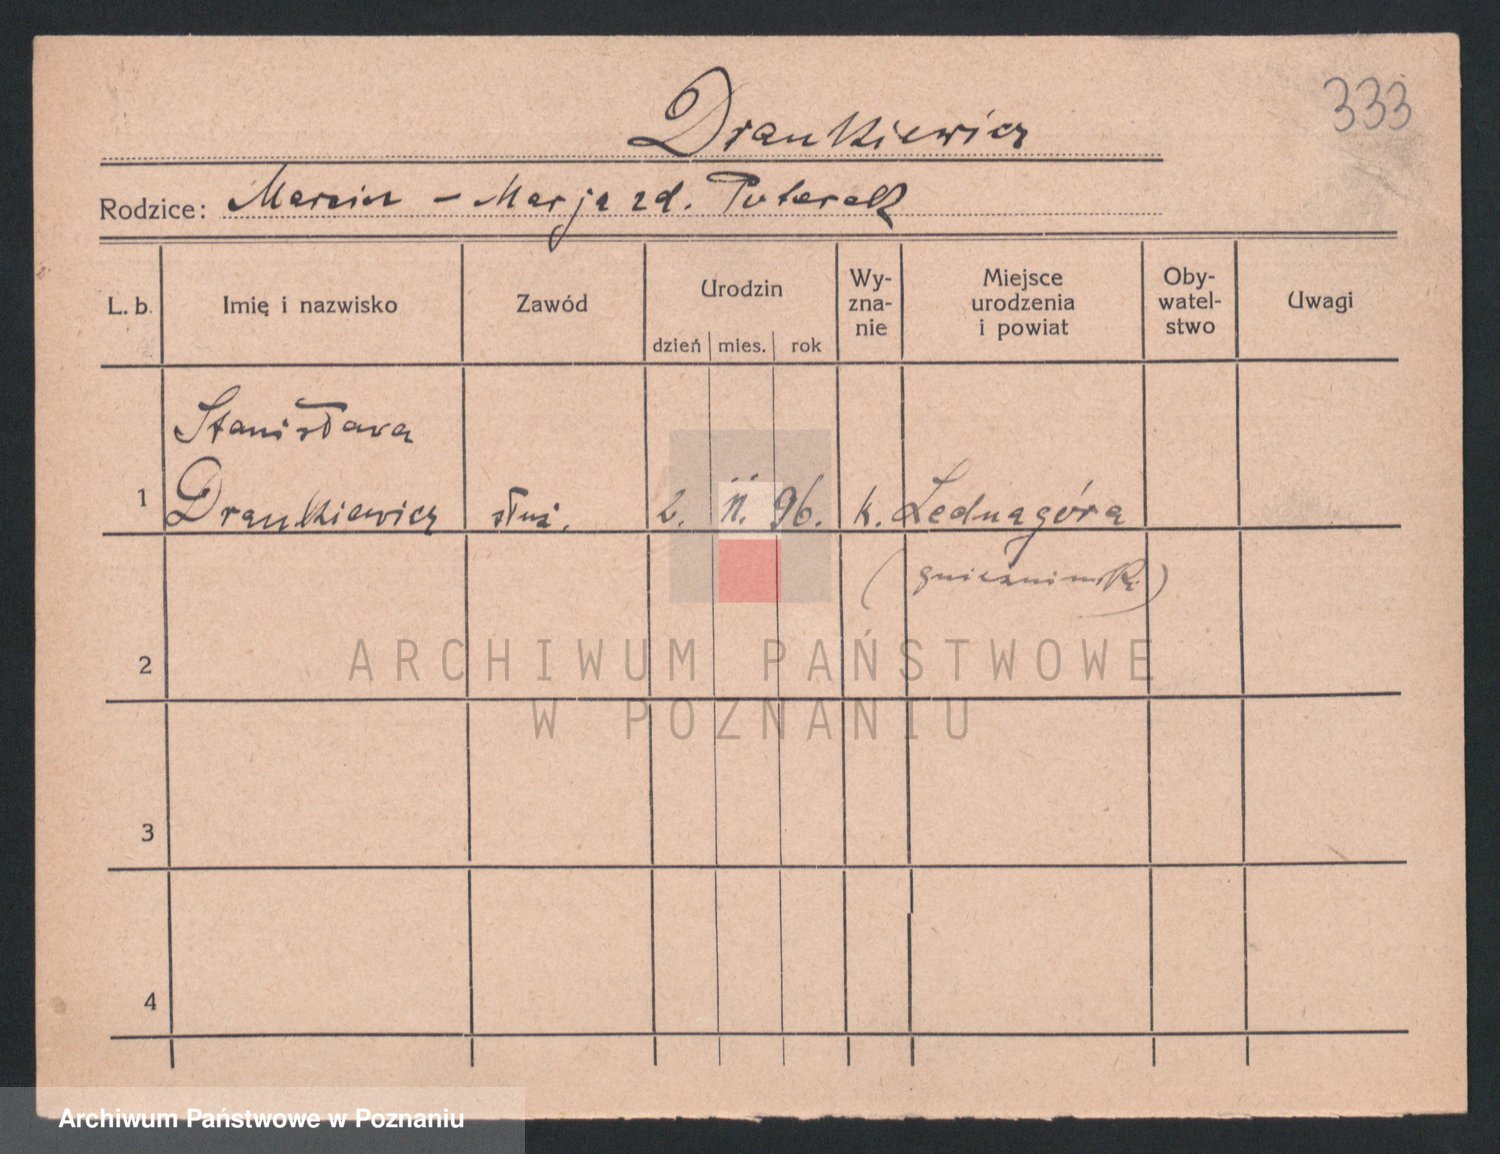 333
Drankiewicz
Rodzice: Marcin - Marja zd. Puterak
L. b. Imię i nazwisko Zawód Urodzin Wy-zna-nie Miejsce urodzenia i powiat Oby-watel-stwo Uwagi
dzień mies. rok
Stanisława
1 Drankiewicz służ. 2. II. 96. k. Lednagóra
(gnieźnieński)
2
ARCHIWUM PAŃSTWOWE
W POZNANIU
3
4
Archiwum Państwowe w Poznaniu